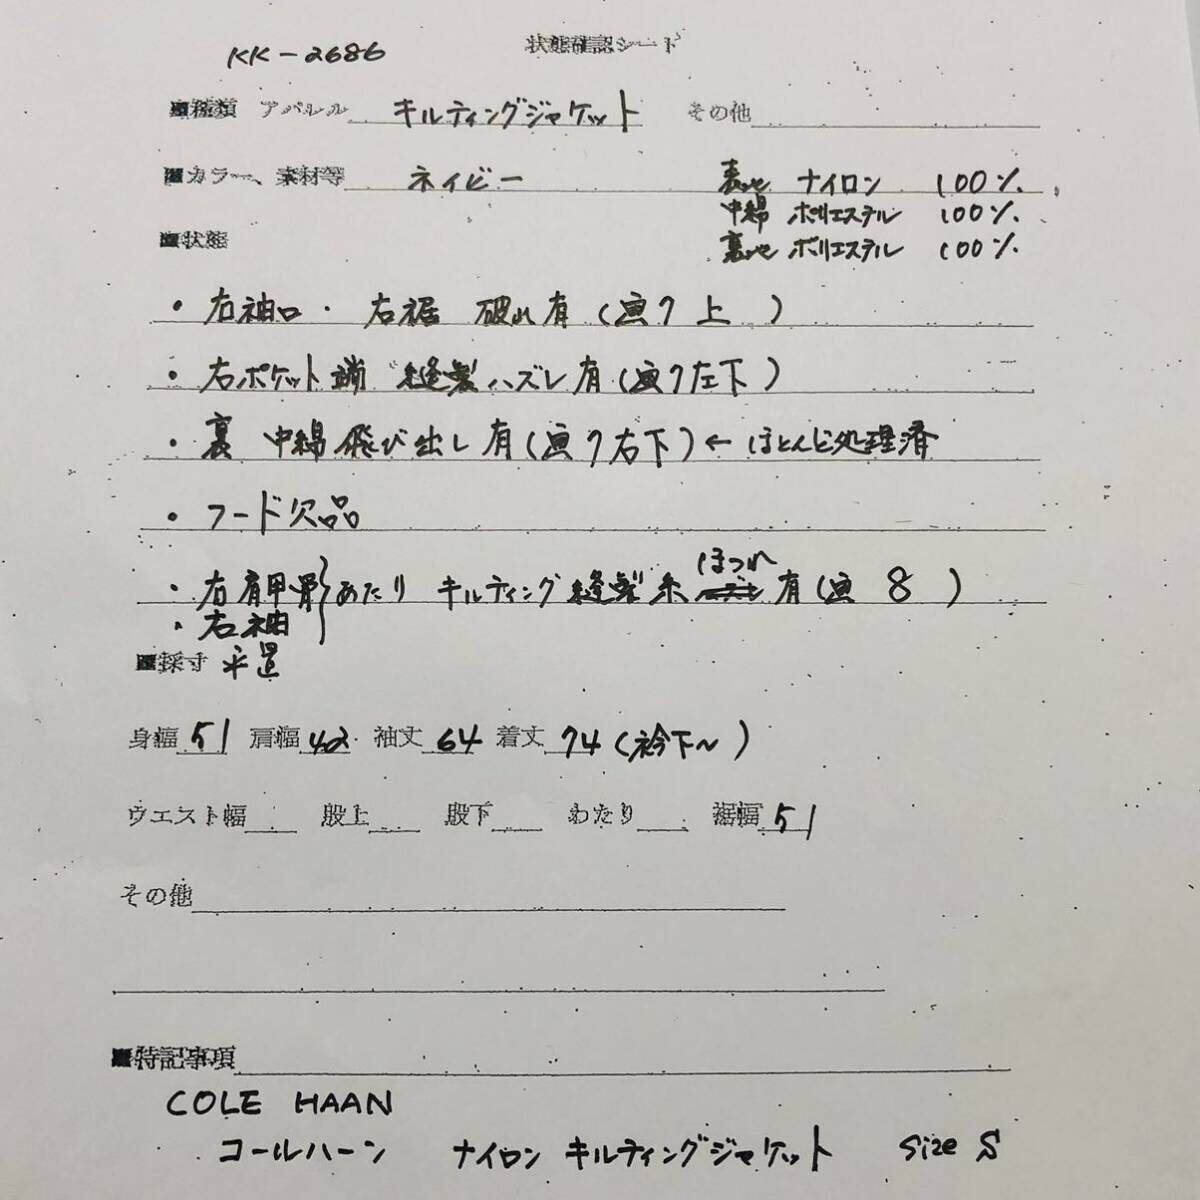 KK-2686
状態確認シート
■種類 アパレル キルティングジャケット その他
■カラー、素材等 ネイビー 表地 ナイロン 100%
中綿 ポリエステル 100%
■状態 裏地 ポリエステル 100%
・右袖口・右裾 破れ有(画7上)
・右ポケット端 縫製ハズレ有(画7左下)
・裏 中綿飛び出し有(画7右下)←ほとんど処理済
・フード欠品
・右肩甲骨}あたり キルティング縫製糸ほつれ有(画 8)
・右袖
■採寸 平置
身幅51 肩幅42 袖丈64 着丈74(衿下~)
ウエスト幅 股上 股下 わたり 裾幅51
その他
■特記事項
COLE HAAN
コールハーン ナイロン キルティングジャケット size S